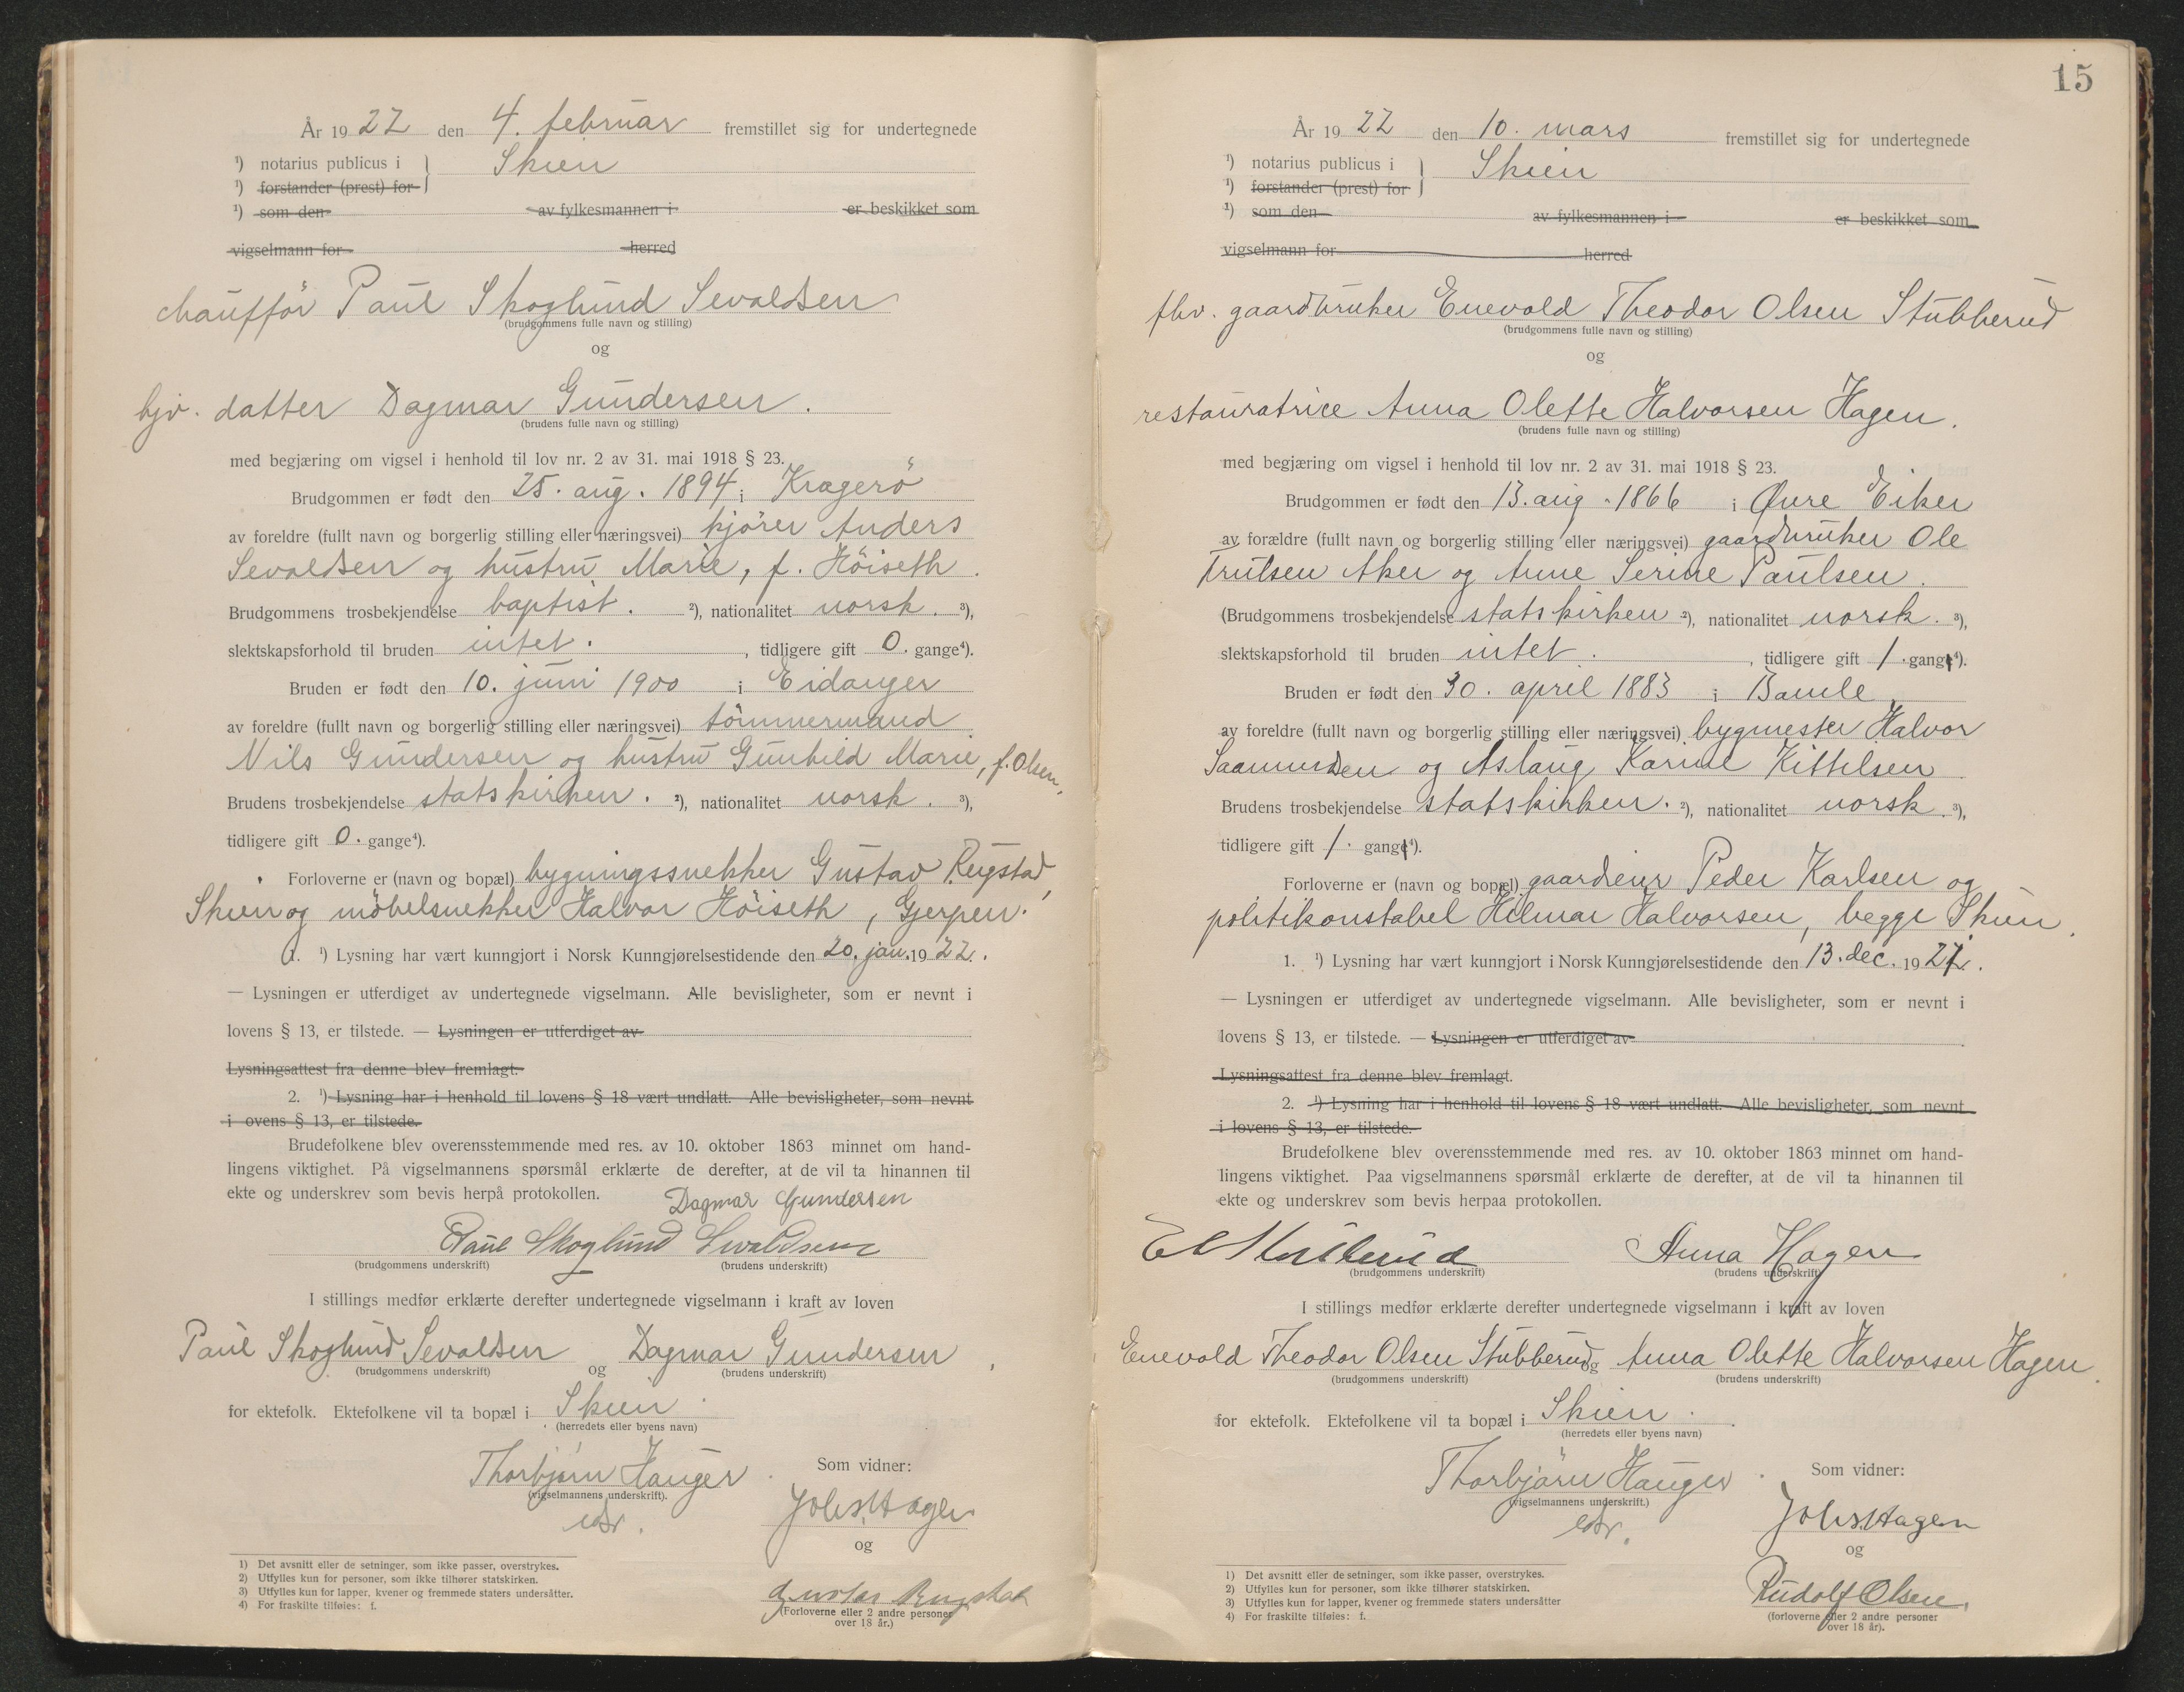 År 1922 den 4. februar fremstillet sig for undertegnede
¹) notarius publicus i } Skien
¹) forstander (prest) for
¹) som den av fylkesmannen i er beskikket som
vigselmann for herred
chauffør Paul Skoglund Sevaldsen
(brudgommens fulle navn og stilling)
og
hjv. datter Dagmar Gundersen.
(brudens fulle navn og stilling)
med begjæring om vigsel i henhold til lov nr. 2 av 31. mai 1918 § 23.
Brudgommen er født den 25. aug. 1894 i Kragerö
av foreldre (fullt navn og borgerlig stilling eller næringsvei) kjörer Anders
Sevaldsen og hustru Marie, f. Höiseth.
Brudgommens trosbekjendelse baptist. ²), nationalitet norsk. ³),
slektskapsforhold til bruden intet. , tidligere gift 0. gange⁴).
Bruden er født den 10. juni 1900 i Eidanger
av foreldre (fullt navn og borgerlig stilling eller næringsvei) tömmermand
Nils Gundersen og hustru Gunhild Marie, f. Olsen.
Brudens trosbekjendelse statskirken. ²), nationalitet norsk. ³),
tidligere gift 0. gange⁴).
Forloverne er (navn og bopæl) bygningssnekker Gustav Rugstad,
Skien og möbelsnekker Halvor Höiseth, Gjerpen.
1. ¹) Lysning har vært kunngjort i Norsk Kunngjørelsestidende den 20. jan. 1922.
— Lysningen er utferdiget av undertegnede vigselmann. Alle bevisligheter, som er nevnt i
lovens § 13, er tilstede. — Lysningen er utferdiget av
Lysningsattest fra denne blev fremlagt.
2. ¹) Lysning har i henhold til lovens § 18 vært undlatt. Alle bevisligheter, som nevnt
i ovens § 13, er tilstede.
Brudefolkene blev overensstemmende med res. av 10. oktober 1863 minnet om hand-
lingens viktighet. På vigselmannens spørsmål erklærte de derefter, at de vil ta hinannen til
ekte og underskrev som bevis herpå protokollen.
Dagmar Gundersen
Paul Skoglund Sevaldsen
(brudgommens underskrift) (brudens underskrift)
I stillings medfør erklærte derefter undertegnede vigselmann i kraft av loven
Paul Skoglund Sevaldsen og Dagmar Gundersen,
(brudgommens underskrift) (brudens underskrift)
for ektefolk. Ektefolkene vil ta bopæl i Skien.
(herredets eller byens navn)
Thorbjörn Hauger
(vigselmannens underskrift).
Som vidner:
Johs. Hagen
og
Gustav Rugstad
(Forloverne eller 2 andre personer
over 18 år.)
1) Det avsnitt eller de setninger, som ikke passer, overstrykes.
2) Utfylles kun for personer, som ikke tilhører statskirken.
3) Utfylles kun for lapper, kvener og fremmede staters undersåtter.
4) For fraskilte tilføies: f.
15
År 1922 den 10. mars fremstillet sig for undertegnede
¹) notarius publicus i } Skien
¹) forstander (prest) for
¹) som den av fylkesmannen i er beskikket som
vigselmann for herred
fhv. gaardbruker Enevold Theodor Olsen Stubberud
(brudgommens fulle navn og stilling)
og
restauratrice Anna Olette Halvorsen Hagen.
(brudens fulle navn og stilling)
med begjæring om vigsel i henhold til lov nr. 2 av 31. mai 1918 § 23.
Brudgommen er født den 13. aug. 1866 i Øvre Eiker
av forældre (fullt navn og borgerlig stilling eller næringsvei) gaardbruker Ole
Trulsen Aker og Anne Serine Paulsen.
(Brudgommens trosbekjendelse statskirken ²), nationalitet norsk. ³),
slektskapsforhold til bruden intet. , tidligere gift 1. gang⁴).
Bruden er født den 30. april 1883 i Bamle
av foreldre (fullt navn og borgerlig stilling eller næringsvei) bygmester Halvor
Saamundsen og Aslaug Karine Kittelsen
Brudens trosbekjendelse statskirken. ²), nationalitet norsk. ³),
tidligere gift 1. gang⁴).
Forloverne er (navn og bopæl) gaardeier Peder Karlsen og
politikonstabel Hilmar Halvorsen, begge Skien.
1. ¹) Lysning har vært kunngjort i Norsk Kunngjørelsestidende den 13. dec. 1921.
— Lysningen er utferdiget av undertegnede vigselmann. Alle bevisligheter, som er nevnt i
lovens § 13, er tilstede. — Lysningen er utferdiget av
Lysningsattest fra denne blev fremlagt.
2. ¹) Lysning har i henhold til lovens § 18 vært undlatt. Alle bevisligheter, som nevnt
i lovens § 13, er tilstede.
Brudefolkene blev overensstemmende med res. av 10. oktober 1863 minnet om hand-
lingens viktighet. Paa vigselmannens spørsmål erklærte de derefter, at de vil ta hinannen til
ekte og underskrev som bevis herpaa protokollen.
Stubberud Anna Hagen
(brudgommens underskrift) (brudens underskrift)
I stillings medfør erklærte derefter undertegnede vigselmann i kraft av loven
Enevold Theodor Olsen Stubberud og Anna Olette Halvorsen Hagen.
(brudgommens underskrift) (brudens underskrift)
for ektefolk. Ektefolkene vil ta bopæl i Skien.
(herredets eller byens navn)
Thorbjörn Hauger
(vigselmannens underskrift.)
Som vidner:
Johs. Hagen
og
Rudolf Olsen.
(forloverne eller 2 andre personer
over 18 år).
1) Det avsnitt eller de setninger, som ikke passer, overstrykes.
2) Utfylles kun for personer, som ikke tilhører statskirken.
3) Utfylles kun for lapper, kvener og fremmede staters undersåtter
4) For fraskilte tilføies: f.